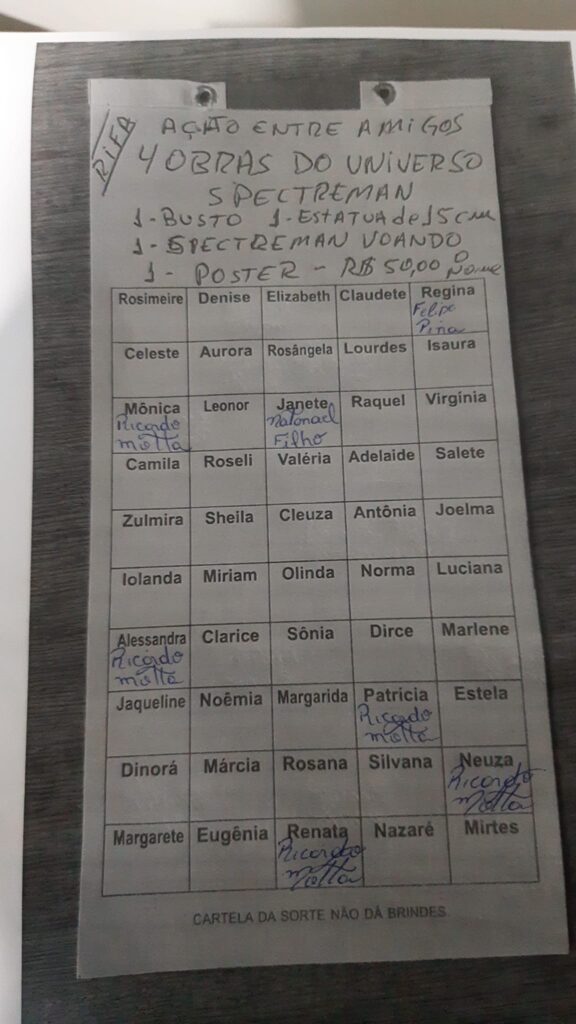 RIFA
AÇÃO ENTRE AMIGOS
4 OBRAS DO UNIVERSO
SPECTREMAN
1-BUSTO 1-ESTATUA de 15 cm
1-SPECTREMAN VOANDO
1- POSTER - R$ 50,00 O Nome
Rosimeire Denise Elizabeth Claudete Regina
Felipe
Pina
Celeste Aurora Rosângela Lourdes Isaura
Mônica Leonor Janete Raquel Virgínia
Ricardo Natanael
motta Filho
Camila Roseli Valéria Adelaide Salete
Zulmira Sheila Cleuza Antônia Joelma
Iolanda Miriam Olinda Norma Luciana
Alessandra Clarice Sônia Dirce Marlene
Ricardo
motta
Jaqueline Noêmia Margarida Patricia Estela
Ricardo
motta
Dinorá Márcia Rosana Silvana Neuza
Ricardo
motta
Margarete Eugênia Renata Nazaré Mirtes
Ricardo
motta
CARTELA DA SORTE NÃO DÁ BRINDES